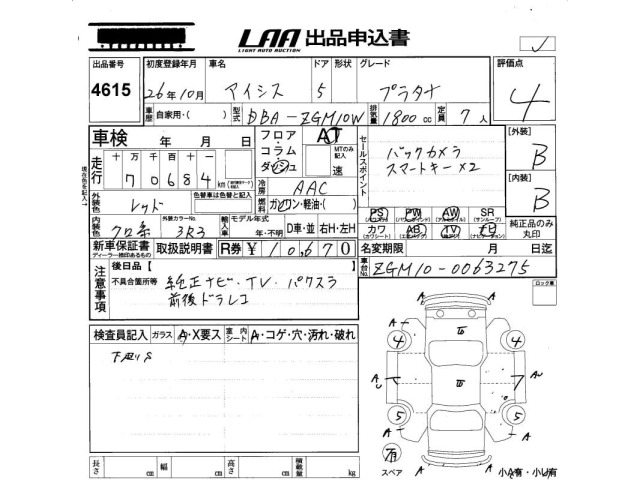 LAA 出品申込書
LIGHT AUTO AUCTION
出品番号 初度登録年月 車名 ドア 形状 グレード 評価点
4615 26年10月 アイシス 5 プラタナ 4
車歴 自家用・( ) 型式 DBA-ZGM10W 排気量 1800cc 定員 7人
車検 年 月 日
フロア・コラム・ダッシュ AT
MTのみ記入 速
セールスポイント
バックカメラ
スマートキー×2
[外装] B
[内装] B
走行 十万千百十一
70684 km
冷房 AAC
外装色 レッド 色替車は色替と記入
燃料 ガソリン・軽油・( )
PS PW AW SR
(パワステ) (パワーウインド) (アルミホイル) (サンルーフ)
カワ AB TV ナビ
(カワシート) (エアバッグ) (テレビ) (ナビゲーション)
純正品のみ丸印
内装色 クロ系 外装カラーNo. 3R3
輸入車 モデル年式 年・不明 D車・並 右H・左H
新車保証書 取扱説明書 R券 ¥10,670
ディーラー捺印あるもの
名変期限 月 日迄
車台No. ZGM10-0063275
ロック車
注意事項
後日品【 】
不具合箇所等 純正ナビ・TV・パワスラ
前後ドラレコ
検査員記入 ガラス A・X要ス 室内シート A・コゲ・穴・汚れ・破れ
下廻りS
A A
4 4
AU AU
5 5
A A
有
スペア
A A
小A有・小U有
長さ cm 幅 cm 高さ cm 積載量 kg